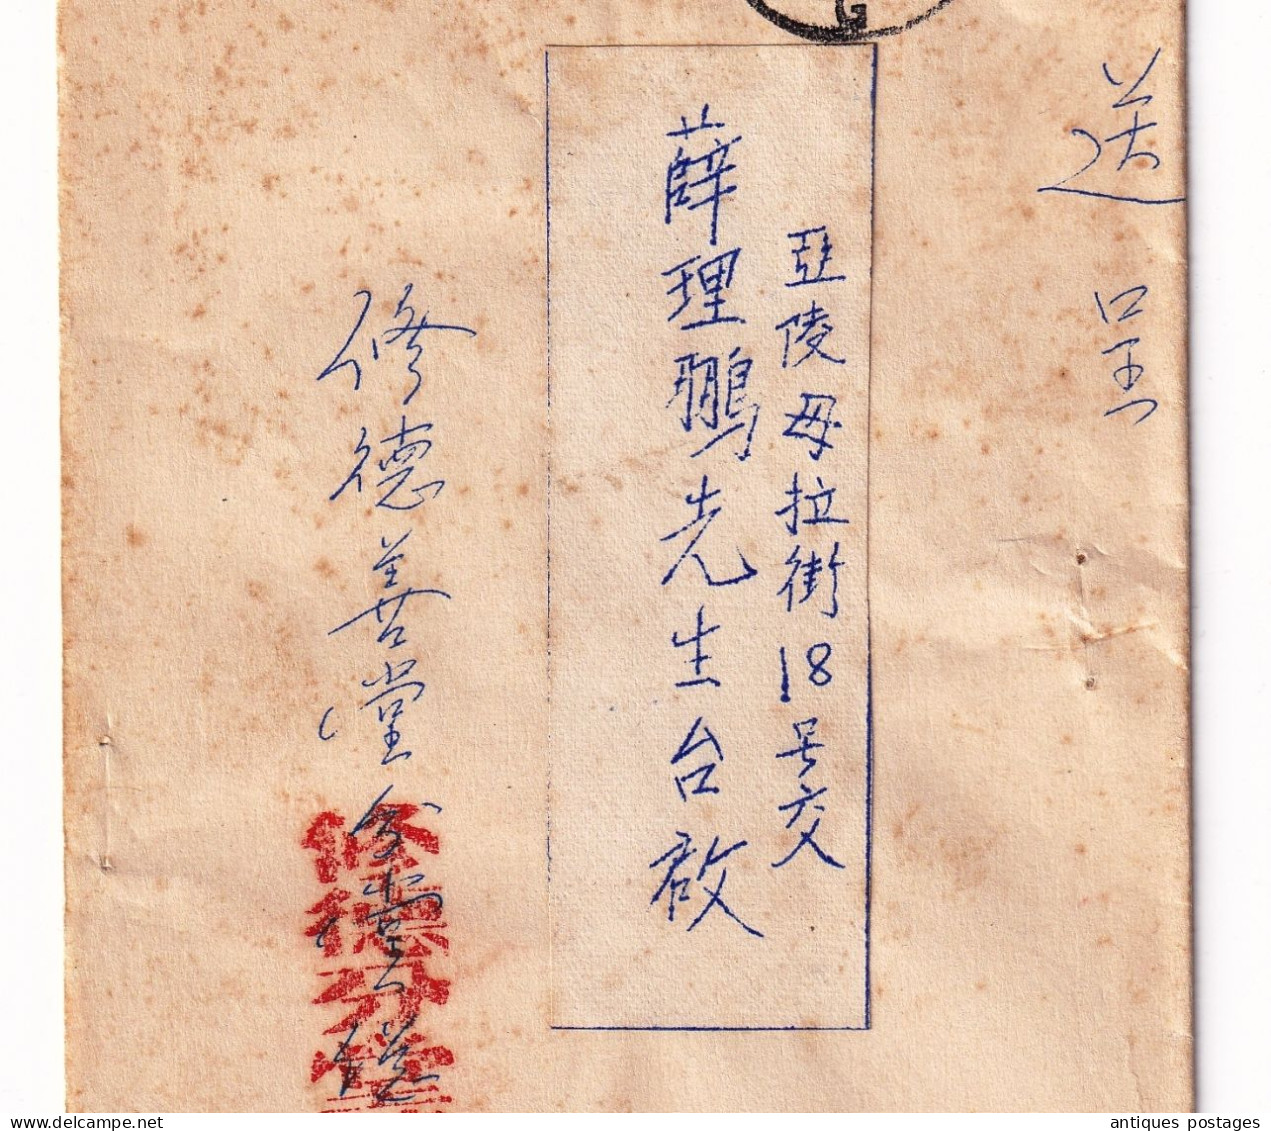 送呈
亞陵毋拉街18号交
薛理鵬先生台啟
修德善堂分堂
修德分堂
antiques postages